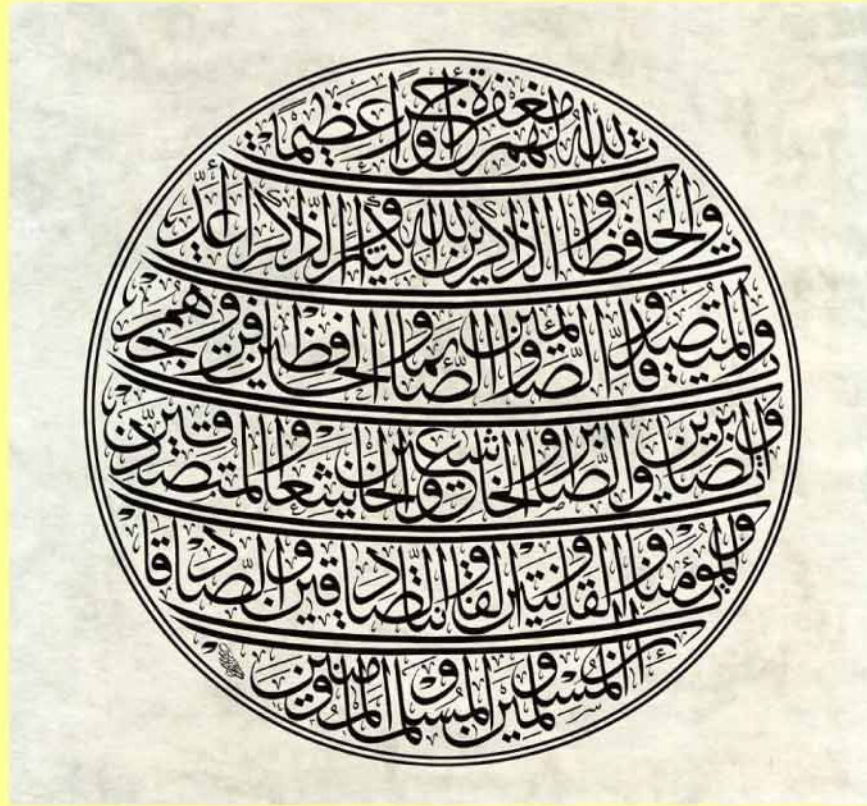 إِنَّ الْمُسْلِمِينَ وَالْمُسْلِمَاتِ وَالْمُؤْمِنِينَ
وَالْمُؤْمِنَاتِ وَالْقَانِتِينَ وَالْقَانِتَاتِ وَالصَّادِقِينَ وَالصَّادِقَاتِ
وَالصَّابِرِينَ وَالصَّابِرَاتِ وَالْخَاشِعِينَ وَالْخَاشِعَاتِ وَالْمُتَصَدِّقِينَ
وَالْمُتَصَدِّقَاتِ وَالصَّائِمِينَ وَالصَّائِمَاتِ وَالْحَافِظِينَ فُرُوجَهُمْ
وَالْحَافِظَاتِ وَالذَّاكِرِينَ اللَّهَ كَثِيرًا وَالذَّاكِرَاتِ أَعَدَّ
اللَّهُ لَهُمْ مَغْفِرَةً وَأَجْرًا عَظِيمًا